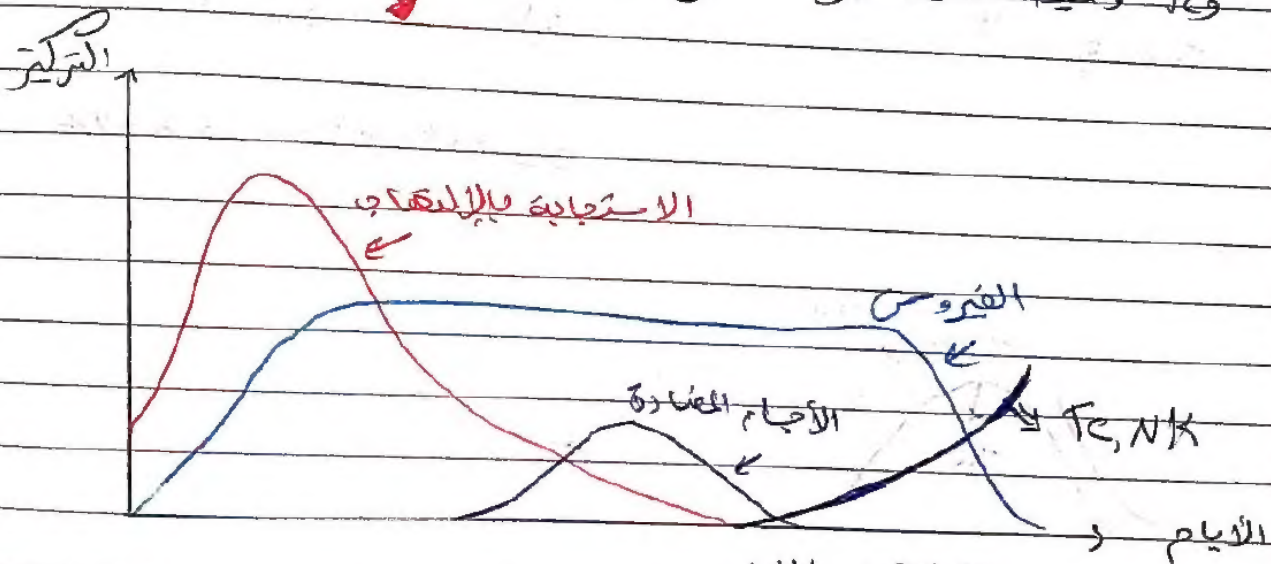 التركيز
الاستجابة بالإلتهاب
الفيروس
الأجسام المضادة
Tc, NK
الأيام